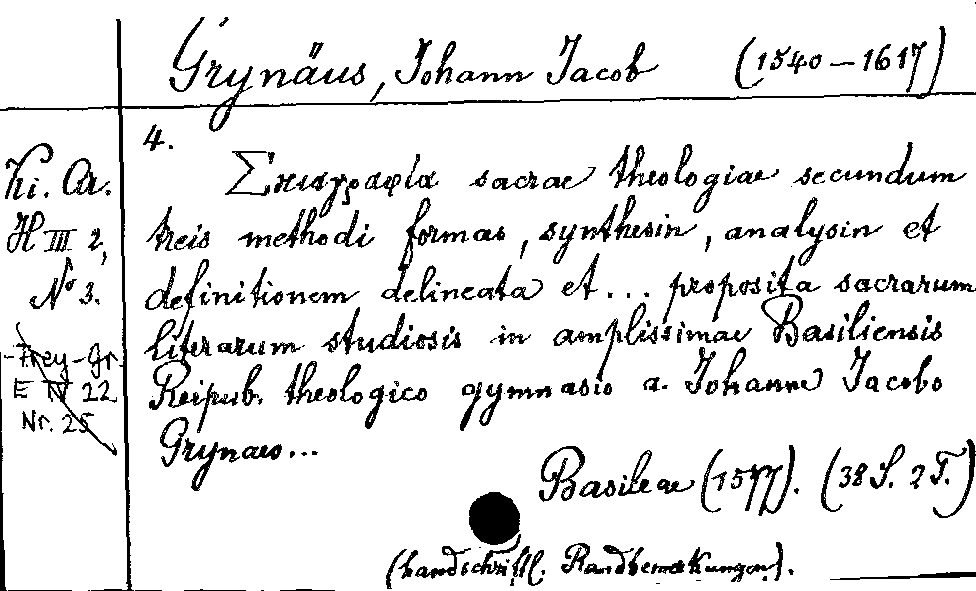 Grynäus, Johann Jacob (1540–1617)
4.
Σκιαγραφία sacrae theologiae secundum
Ki. Ar.
H III 2,
No 3.
treis methodi formas, synthesin, analysin et
definitionem delineata et... proposita sacrarum
literarum studiosis in amplissimae Basiliensis
-Frey-Gr.
E IV 22
Nr. 25
Reipub. theologico gymnasio a. Johanne Jacobo
Grynaeo...
Basileae (1577). (38 S. 2 T.)
(handschriftl. Randbemerkungen).